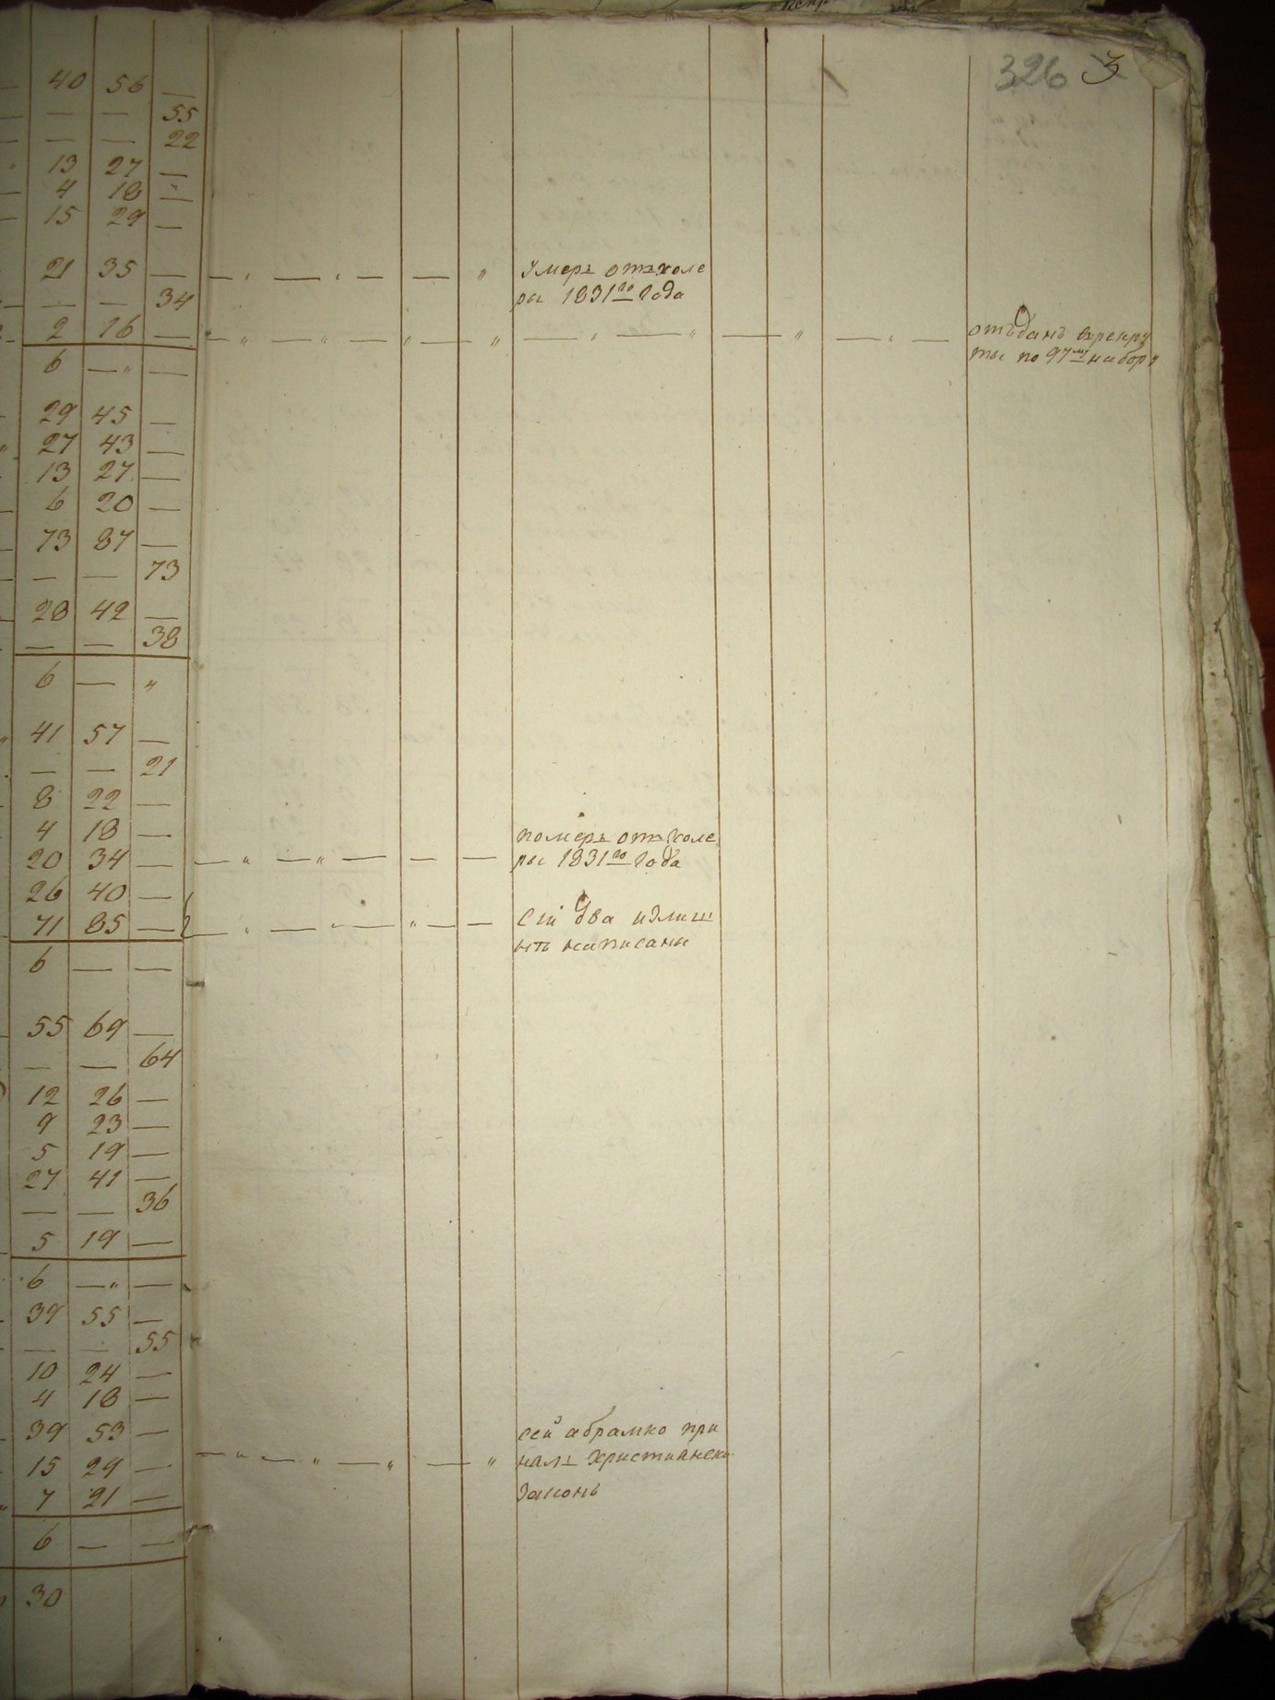 326 3
40 56 —
— — 55
— — 22
13 27 —
4 18 —
15 29 —
21 35 —
умеръ отъ холе
— — 34
ры 1831го года
2 16 —
отъданъ врекру
ты по 97му набору
6 — —
29 45 —
27 43 —
13 27 —
6 20 —
73 87 —
— — 73
28 42 —
— — 38
6 — „
41 57 —
— — 21
8 22 —
4 18 —
померъ отъ холе
20 34 —
ры 1831го года
26 40 —
71 85 —
Сіи два излиш
нѣ написаны
6 — —
55 69 —
— — 64
12 26 —
9 23 —
5 19 —
27 41 —
— — 36
5 19 —
6 — —
39 55 —
— — 55
10 24 —
4 18 —
39 53 —
сей абрамко при
15 29 —
нялъ християнски
7 21 —
законъ
6 — —
30